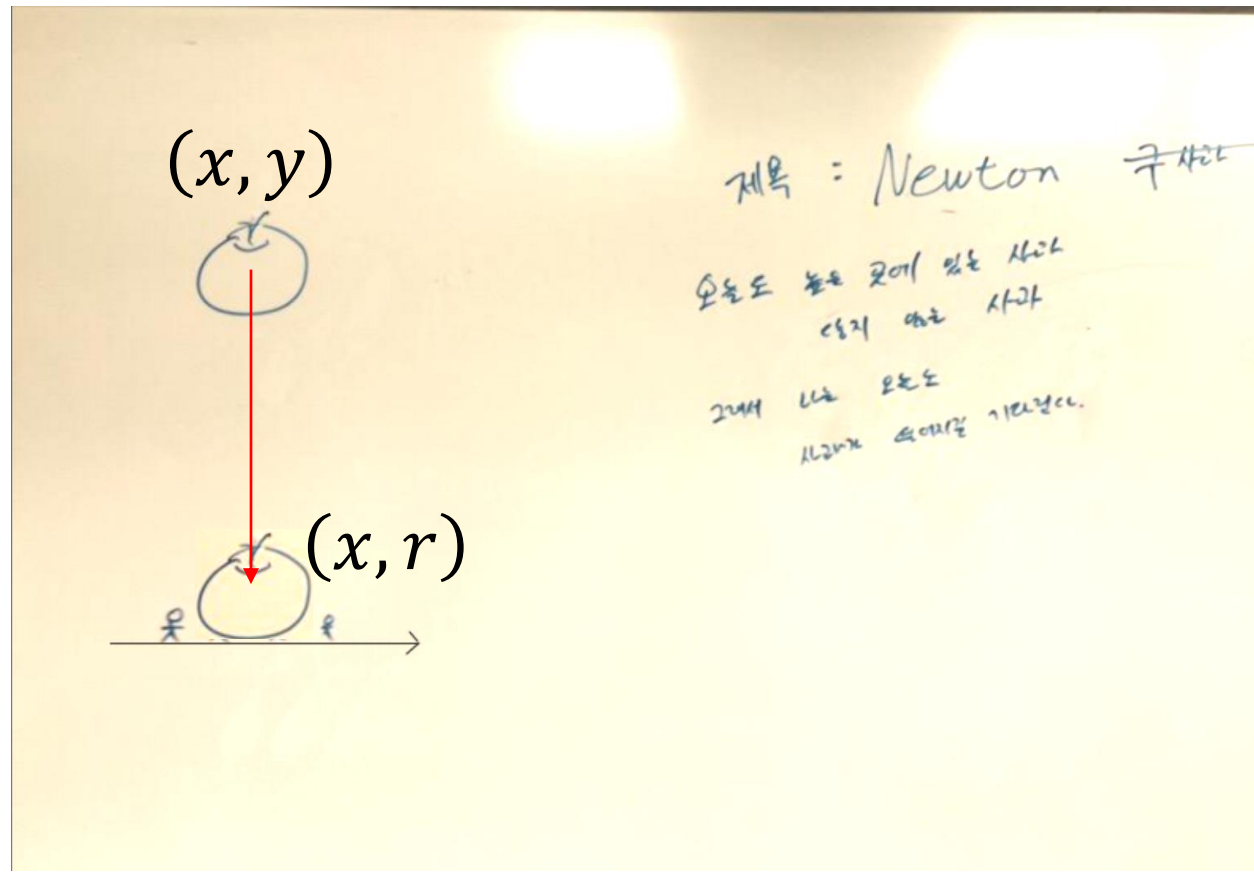 (x, y)
제목 : Newton 구사과
오늘도 높은 곳에 있는 사과
닿지 않는 사과
그래서 나는 오늘도
사과가 떨어지길 기다린다.
(x, r)